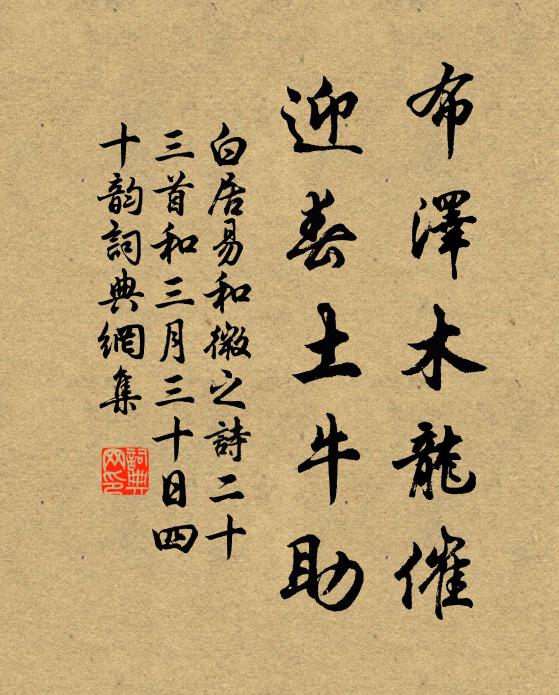 布澤木龍催
迎春土牛助
白居易和微之詩二十
三首和三月三十日四
十韵詞典網集
詞典
网印